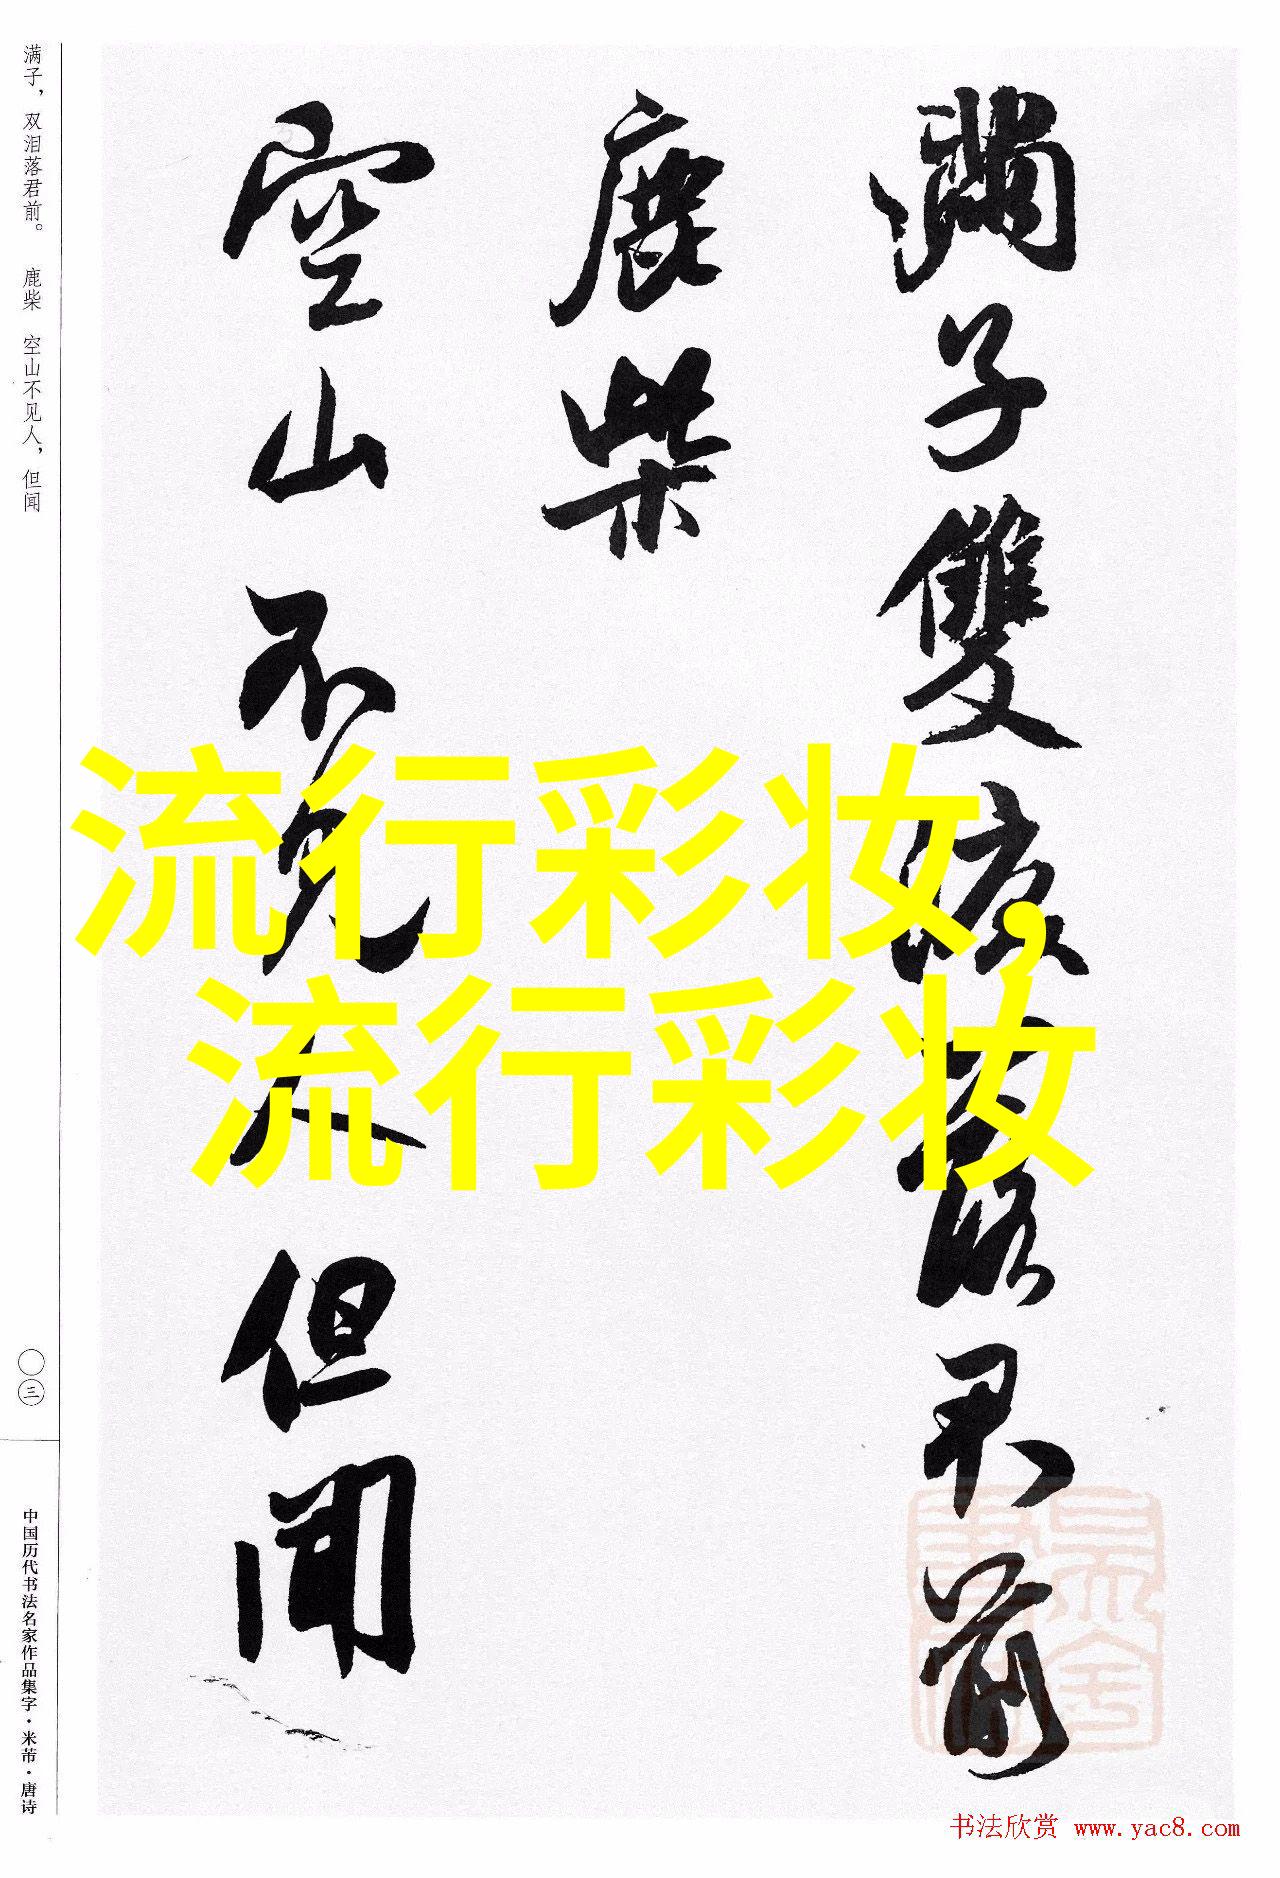 满子，双泪落君前。 鹿柴 空山不见人，但闻
滿子雙淚落君前
鹿柴
空山不見人但聞
流行彩妆，
流行彩妆
〇三
中国历代书法名家作品集字·米芾·唐诗
书法欣赏 www.yac8.com